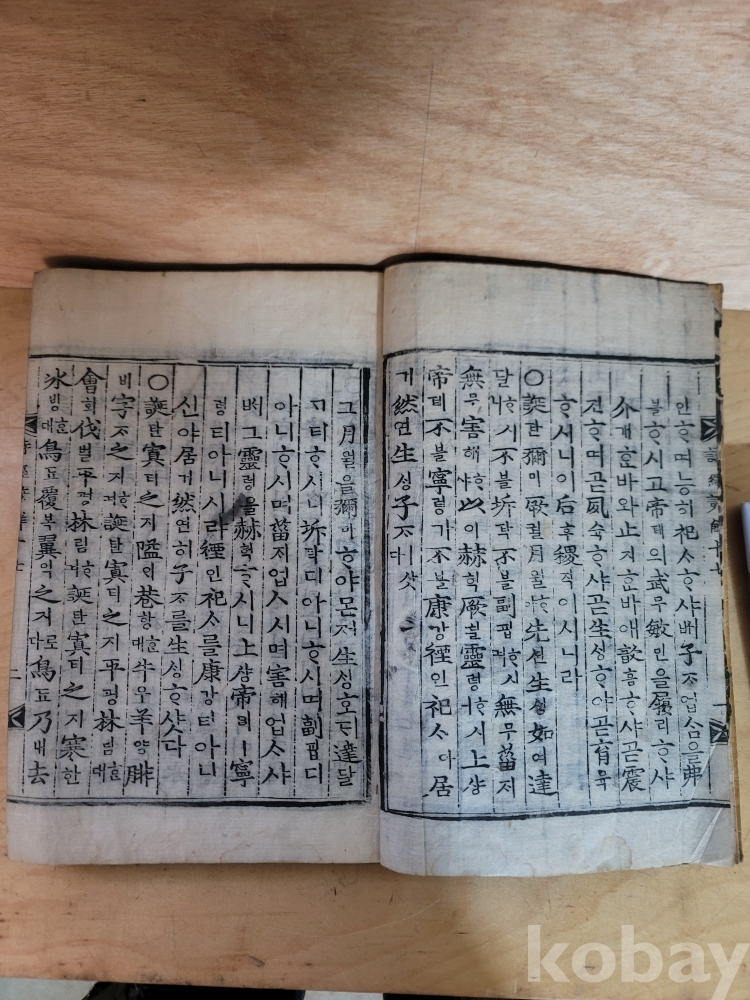 인ᄒᆞ며能히祀ᄉᆞᄒᆞ샤ᄡᅥ子ᄌᆞ업ᄉᆞᆷ을弗
불ᄒᆞ시고帝뎨의武무敏민을履리ᄒᆞ샤
介개ᄒᆞᆫ바와止지ᄒᆞᆫ바애歆흠ᄒᆞ샤곧震
진ᄒᆞ며곧夙슉ᄒᆞ샤곧生ᄉᆡᆼᄒᆞ야곧育육
ᄒᆞ시니이后후稷직이시니라
○誕탄彌미厥궐月월先션生ᄉᆡᆼ如여達
달ᄒᆞ시不불坼탁不불副픱ᄒᆞ시無무菑ᄌᆡ
無무害해ᄒᆞ샤以이赫혁厥궐靈령ᄒᆞ시上샹
帝뎨不불寧령가不불康강禋인祀ᄉᆞ아居
거然연生ᄉᆡᆼ子ᄌᆞ샷다
그月월을彌미ᄒᆞ야몬져生ᄉᆡᆼ호ᄃᆡ達달
ᄀᆞ티ᄒᆞ시니坼탁디아니ᄒᆞ시며副픱디
아니ᄒᆞ시며菑ᄌᆡ업ᄉᆞ시며害해업ᄉᆞ샤
ᄡᅥ그靈령을赫혁ᄒᆞ시니上샹帝뎨ㅣ寧
령티아니시랴禋인祀ᄉᆞ를康강티아니
신야居거然연히子ᄌᆞ를生ᄉᆡᆼᄒᆞ샷다
○誕탄寘티之지隘ᄋᆡ巷항ᄒᆞᆫ대牛우羊양腓
비字ᄌᆞ之지ᄒᆞ며誕탄寘티之지平평林림ᄒᆞᆫ대
會회伐벌平평林림ᄒᆞ며誕탄寘티之지寒한
冰빙ᄒᆞᆫ대鳥됴覆부翼익之지로다鳥됴乃내去
詩經諺解十七
kobay